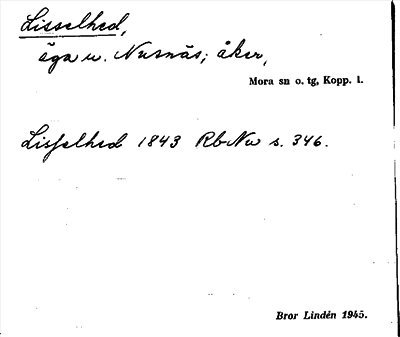 Lisselhed,
äga u. Nusnäs; åker,
Mora sn o. tg, Kopp. l.
Lisselhed 1843 RbNu s. 346.
Bror Lindén 1945.